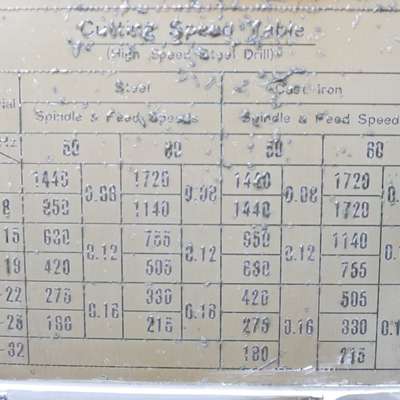 Cutting Speed Table
(High Speed Steel Drill)
Steel Cast Iron
Spindle & Feed Speeds Spindle & Feed Speed
Hz 50 60 50 60
1440 0.08 1720 0.08 1440 0.08 1720
8 950 1140 1440 1720
15 630 0.12 755 0.12 950 0.12 1140
19 420 505 630 755
-22 275 0.16 330 0.16 420 505
-28 180 215 275 0.16 330
-32 180 215